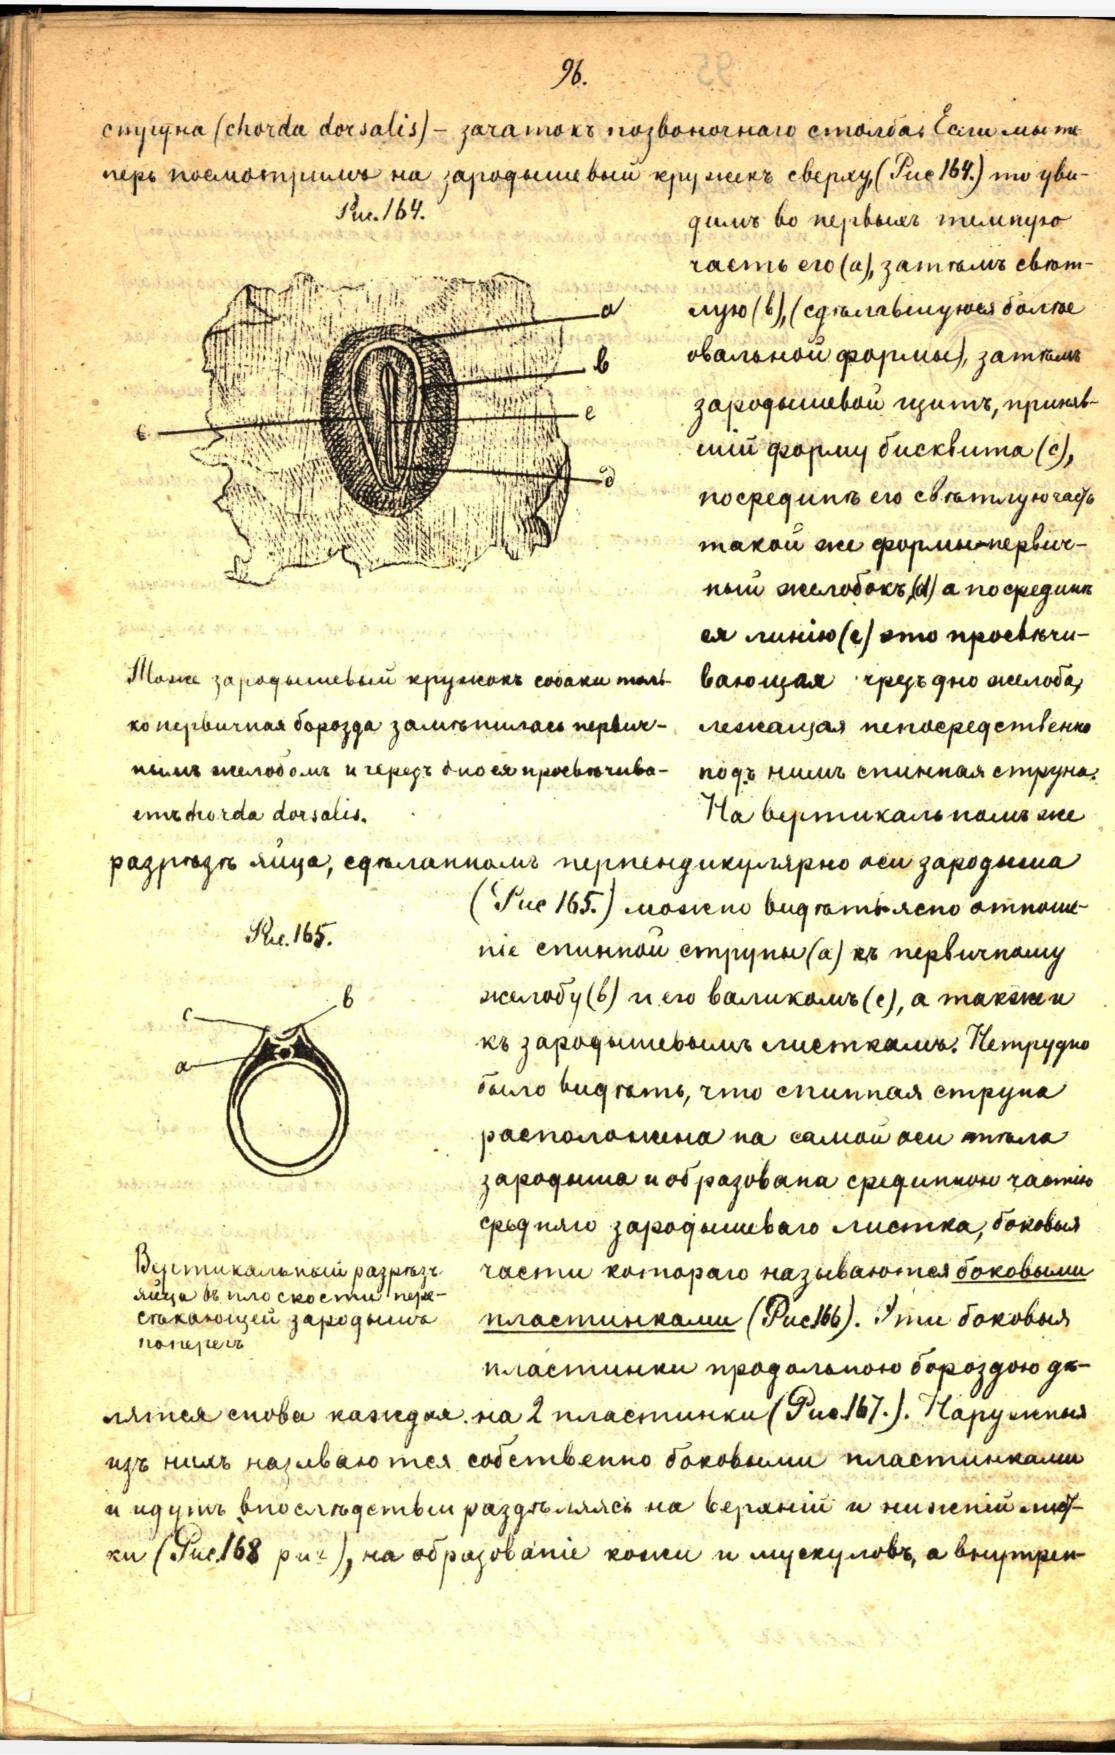 96.
струна (chorda dorsalis) – зачатокъ позвоночнаго столба. Если мы те
перь посмотримъ на зародышевый кружекъ сверху, (Рис 164.) то уви-
Рис. 164.
димъ во первыхъ темную
часть его (а), затѣмъ свѣт-
лую (b), (сдѣлавшуюся болѣе
овальной формы), затѣмъ
зародышевой щитъ, приняв-
шій форму бисквита (с),
посрединѣ его свѣтлую часть
такой же формы – первич-
ный желобокъ, (d) а посрединѣ
ея линію (е) это просвѣчи-
вающая чрезъ дно желоба,
лежащая непосредственно
подъ нимъ спинная струна.
a
b
e
c
d
Тоже зародышевый кружокъ собаки толь-
ко первичная борозда замѣнилась первич-
нымъ желобомъ и черезъ дно ея просвѣчива-
етъ chorda dorsalis.
На вертикальномъ же
разрѣзѣ яйца, сдѣланномъ перпендикулярно оси зародыша
(Рис 165.) можно видѣть ясно отноше-
ніе спинной струны (а) къ первичному
желобу (b) и его валикомъ (с), а также и
къ зародышевымъ листкамъ. Нетрудно
было видѣть, что спинная струна
расположена на самой оси тѣла
зародыша и образована срединною частію
средняго зародышеваго листка, боковыя
части котораго называются боковыми
пластинками (Рис 166). Эти боковыя
пластинки продольною бороздою дѣ-
Рис. 165.
c
b
a
Вертикальный разрѣзъ
яйца въ плоскости пере-
сѣкающей зародышъ
поперегъ
лятся снова каждая на 2 пластинки (Рис. 167.). Наружныя
изъ нихъ называются собственно боковыми пластинками
и идутъ впослѣдствіи раздѣляясь на верхній и нижній лист-
ки (Рис. 168), на образованіе кожи и мускуловъ, а внутрен-